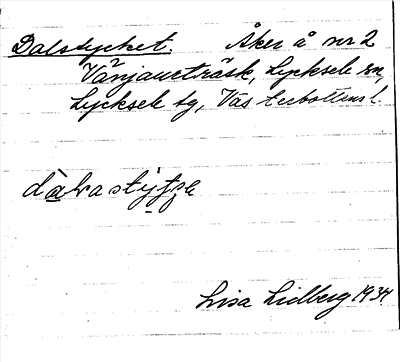 Dalstycket. Åker å nr 2
Vänjaurträsk, Lycksele sn,
Lycksele tg, Västerbottens l.
Lisa Lidberg 1934